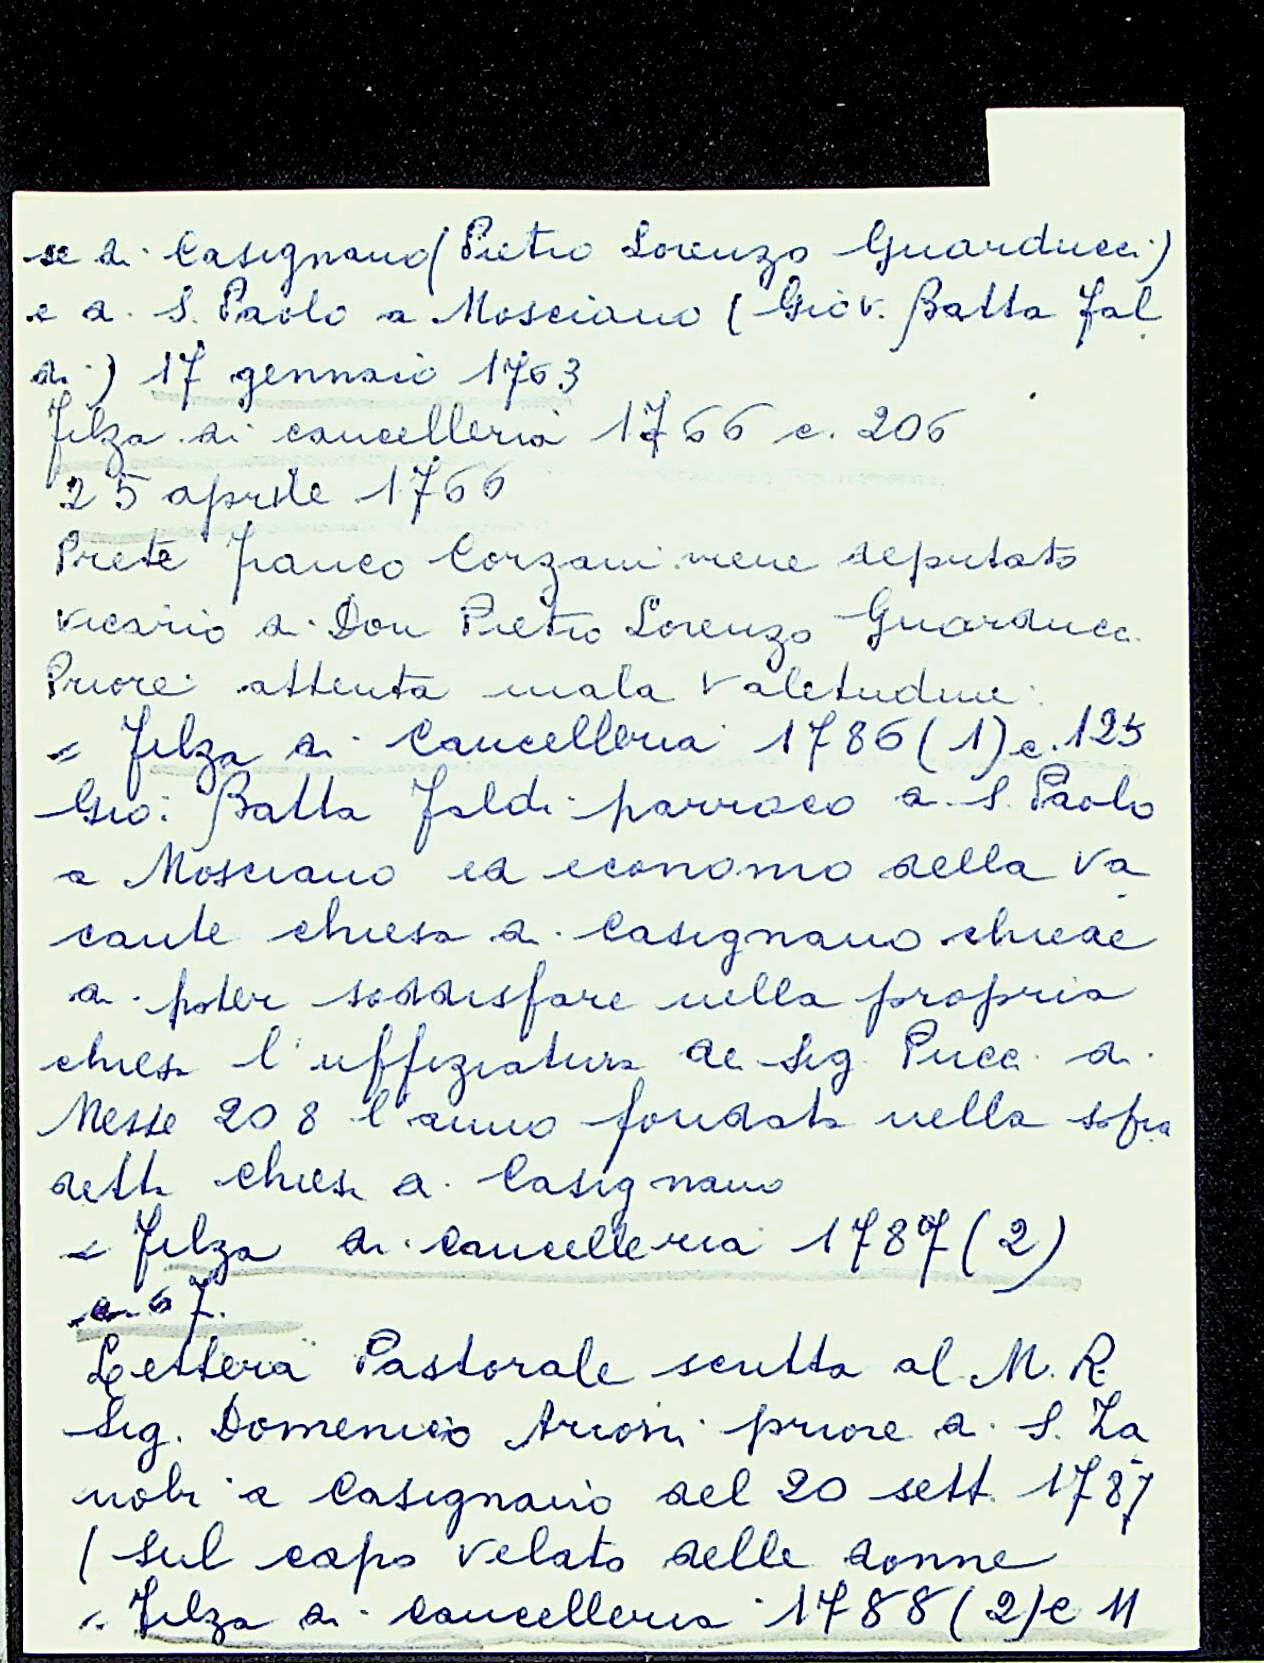 se di Casignano (Pietro Lorenzo Guarducci)
e di S. Paolo a Mosciano (Giov. Batta Fal
di) 17 gennaio 1763
Filza di cancelleria 1766 c. 206
25 aprile 1766
Prete Franco Corzani viene deputato
vicario di Don Pietro Lorenzo Guarducci
Priore attenta mala valetudine.
= Filza di Cancelleria 1786 (1) c. 125
Gio: Batta Faldi parroco di S. Paolo
a Mosciano ed economo della va
cante chiesa di Casignano chiede
di poter soddisfare nella propria
chiesa l'uffiziatura de Sig. Pucci di
Messe 208 l'anno fondata nella sopra
detta chiesa di Casignano
= Filza di cancelleria 1787 (2)
c. 67.
Lettera Pastorale scritta al M. R.
Sig. Domenico Arrosi priore di S. Za
nobi a Casignano del 20 sett. 1787
(sul capo velato delle donne
= Filza di cancelleria 1788 (2) c 11